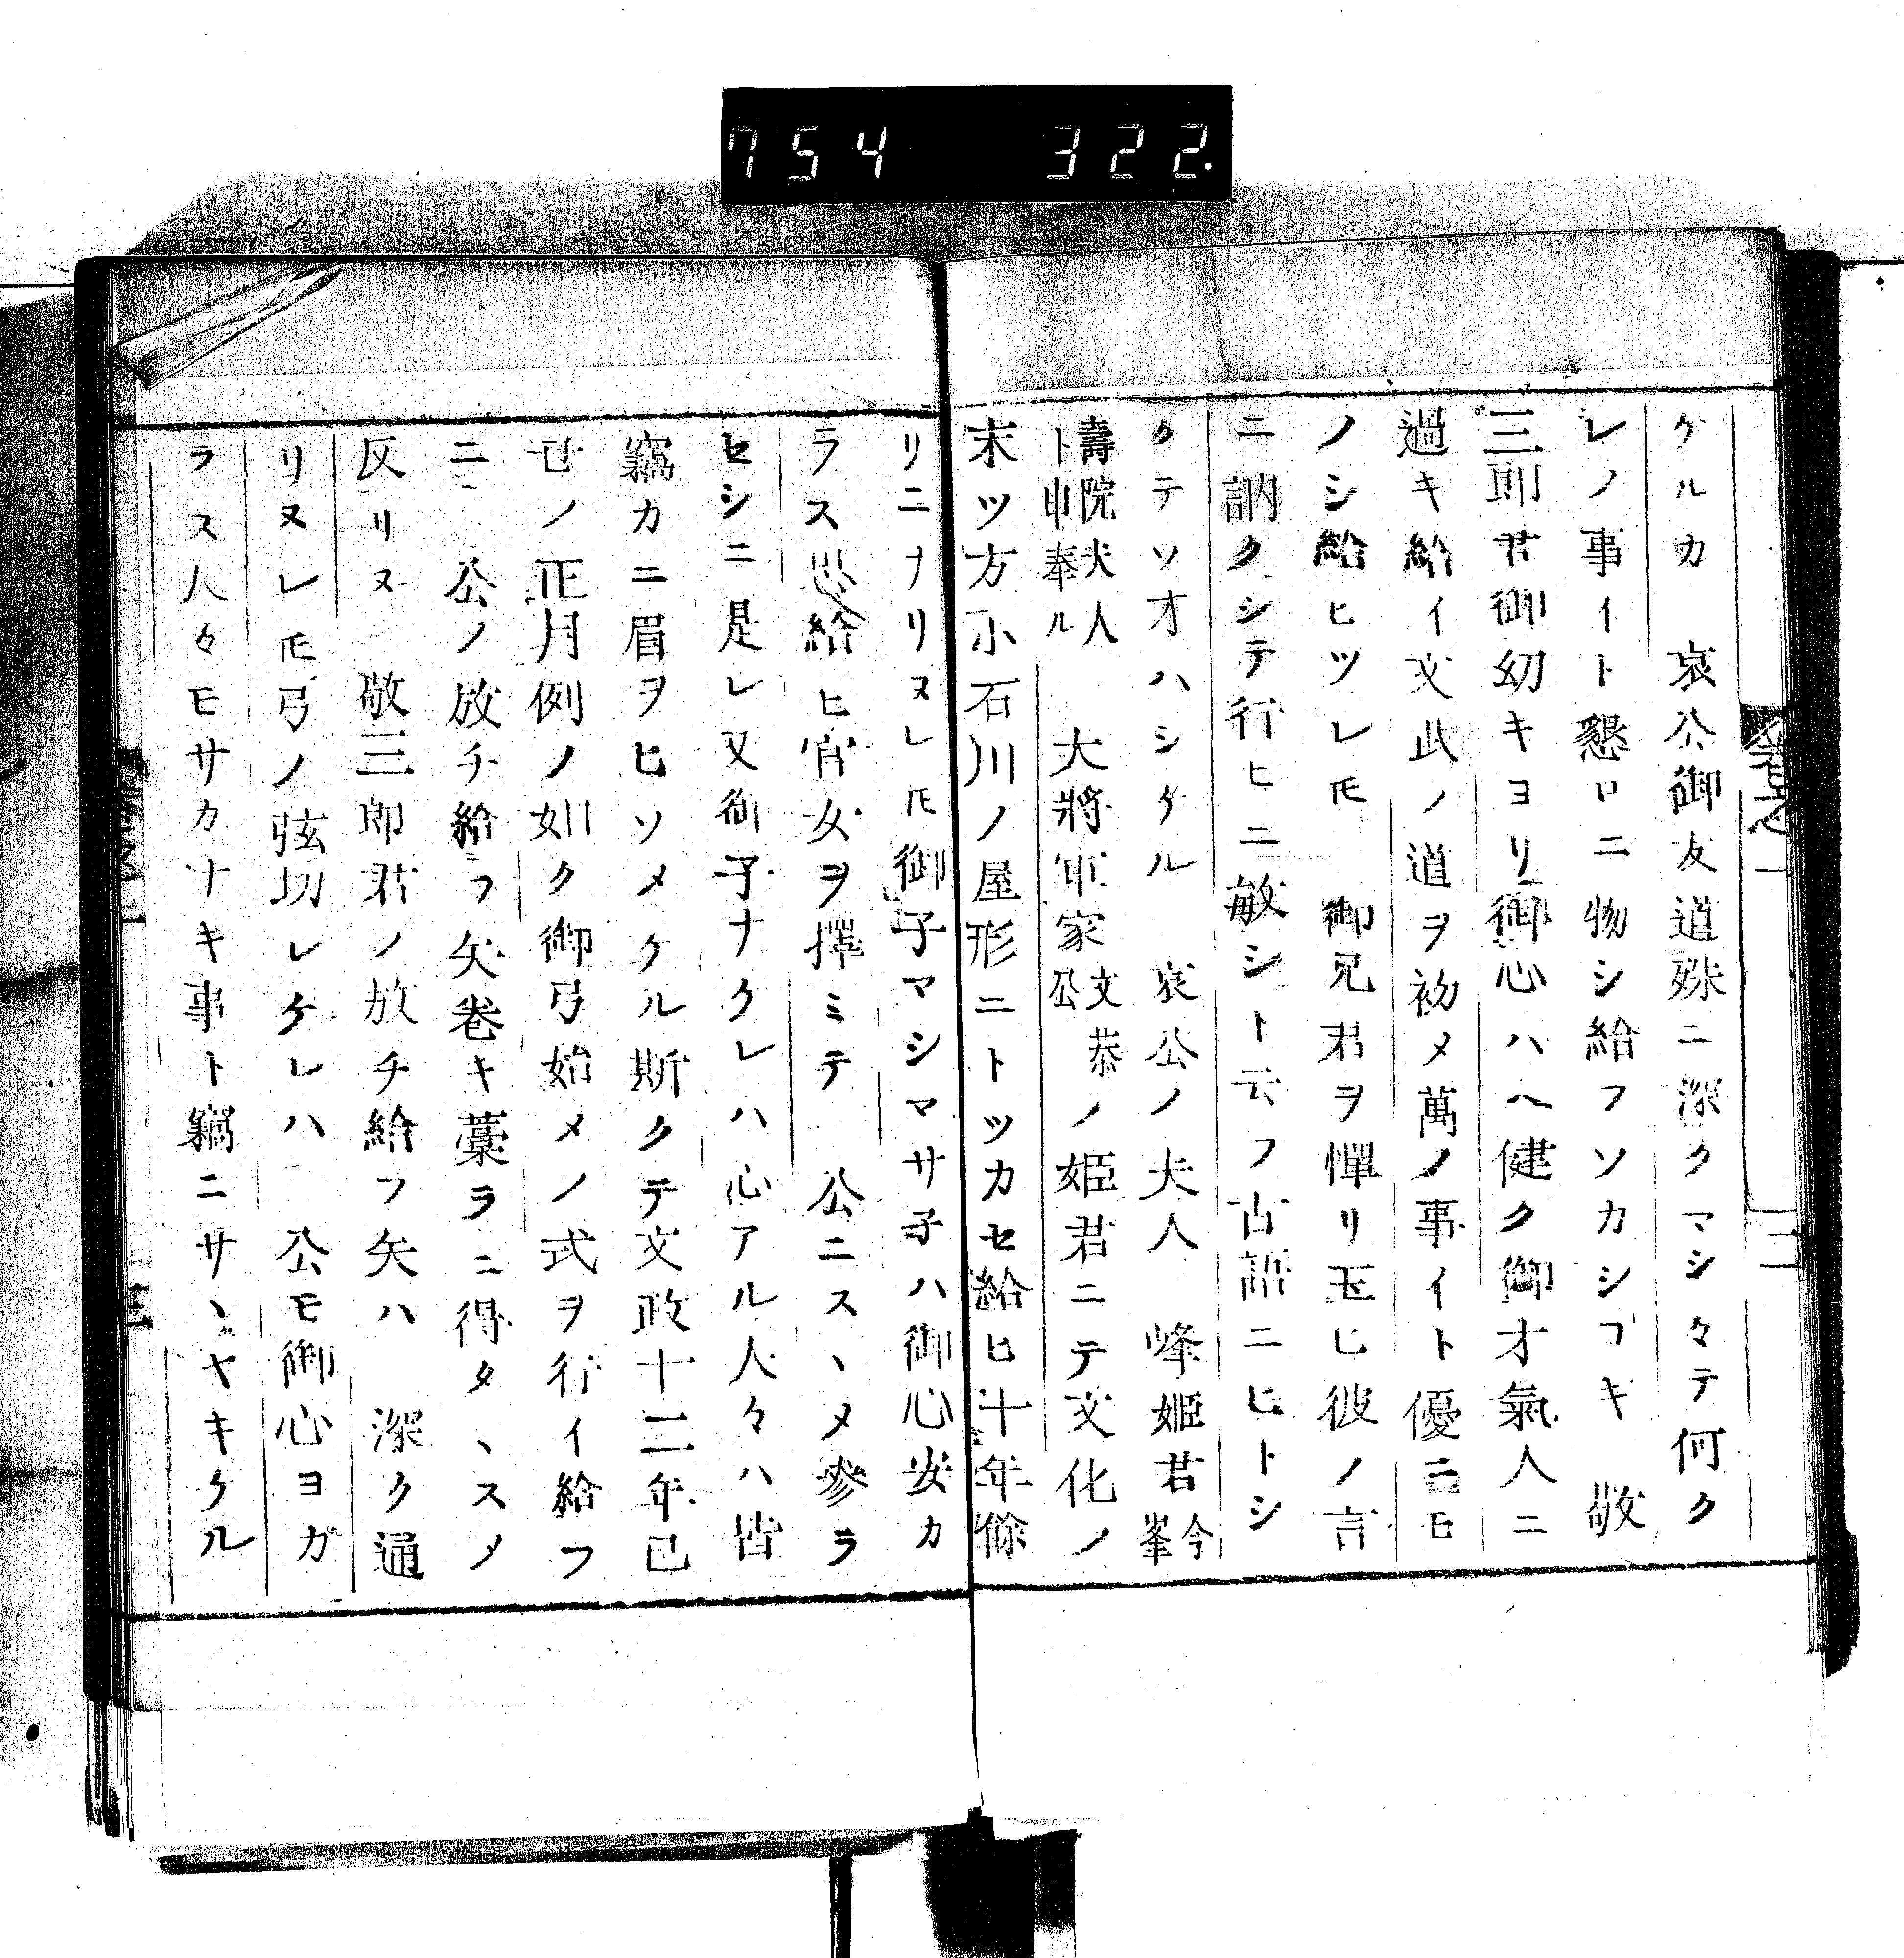 754 322.
卷之一
二
ケルカ 哀公御友道殊ニ深クマシ〳〵テ何ク
レノ事イト懇ロニ物シ給フソカシコキ 敬
三郎君御幼キヨリ御心ハヘ健ク御才氣人ニ
過キ給イ文武ノ道ヲ初メ萬ノ事イト優ニモ
ノシ給ヒツレ𪜈 御兄君ヲ憚リ玉ヒ彼ノ言
ニ訥クシテ行ヒニ敏シト云フ古語ニヒトシ
クテソオハシケル 哀公ノ夫人 峰姬君今峯
壽院夫人ト申奉ル 大將軍家文恭公ノ姬君ニテ文化ノ
末ツ方小石川ノ屋形ニトツカセ給ヒ十年餘
リニナリヌレ𪜈御子マシマサ子ハ御心安カ
ラス思給ヒ官女ヲ擇ミテ 公ニスヽメ參ラ
セシニ是レ又御子ナケレハ心アル人々ハ皆
竊カニ眉ヲヒソメケル斯クテ文政十二年己
丑ノ正月例ノ如ク御弓始メノ式ヲ行イ給フ
ニ 公ノ放チ給フ矢卷キ藁ラニ得タヽスメ
反リヌ 敬三郎君ノ放チ給フ矢ハ 深ク通
リヌレ𪜈弓ノ弦切レケレハ 公モ御心ヨカ
ラス人々モサカナキ事ト竊ニサヽヤキケル